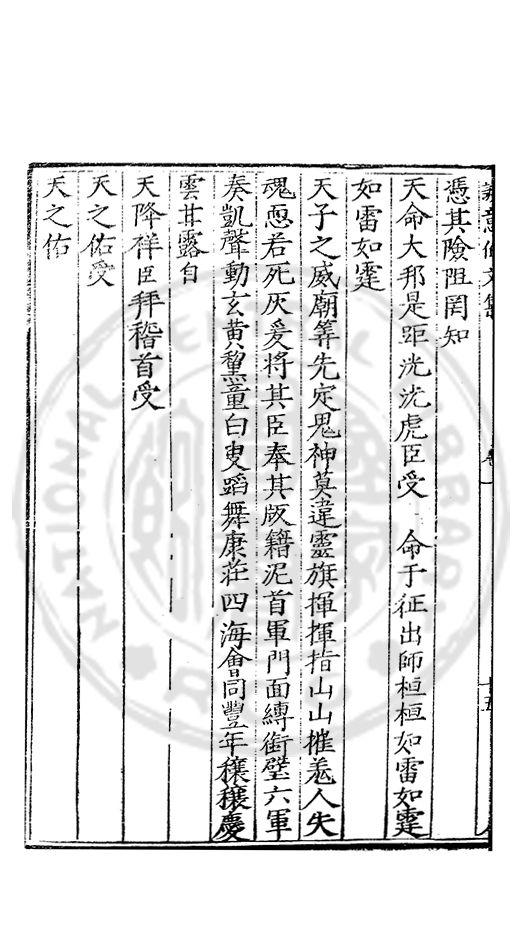 憑其險阻罔知
天命大邦是距洸洸虎臣受　命于征出師桓桓如雷如霆
如雷如霆
天子之威廟筭先定鬼神莫違靈旗揮揮指山山摧羌人失
魂恧若死灰爰將其臣奉其版籍泥首軍門面縛銜璧六軍
奏凱聲動玄黃黧童白叟蹈舞康莊四海會同豐年穰穰慶
雲甘露自
天降祥臣拜稽首受
天之佑受
天之佑
NATIONAL CENTRAL LIBRARY